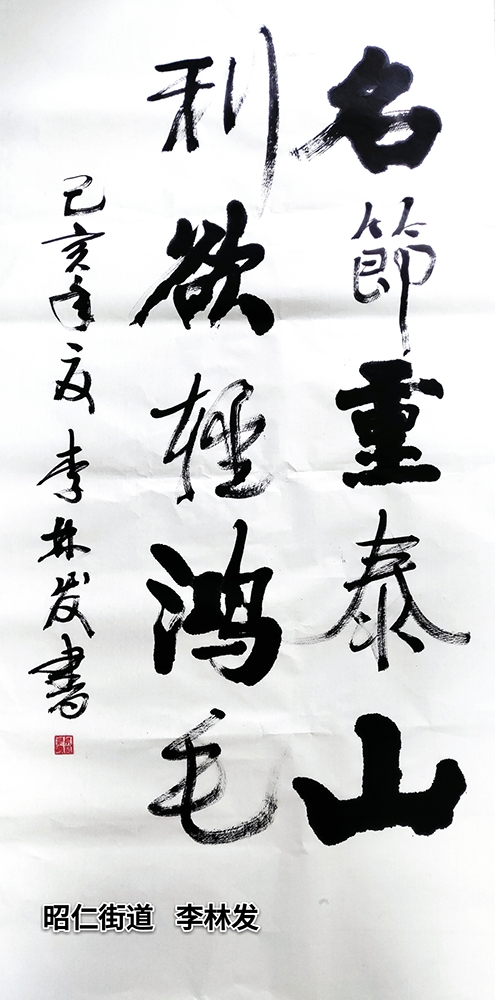 名節重泰山
利欲輕鸿毛
己亥年夏李林发書
昭仁街道 李林发